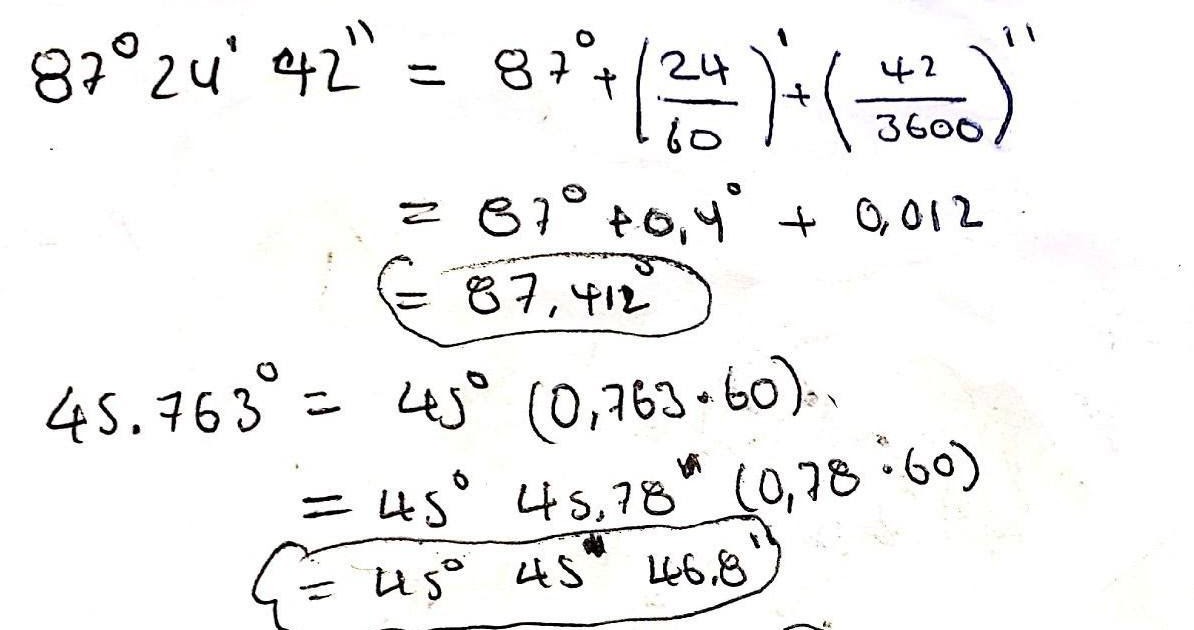 87° 24' 42" = 87° + (24/60)' + (42/3600)"
= 87° + 0,4° + 0,012
= 87,412°
45.763° = 45° (0,763·60)
= 45° 45.78" (0,78·60)
= 45° 45" 46.8"